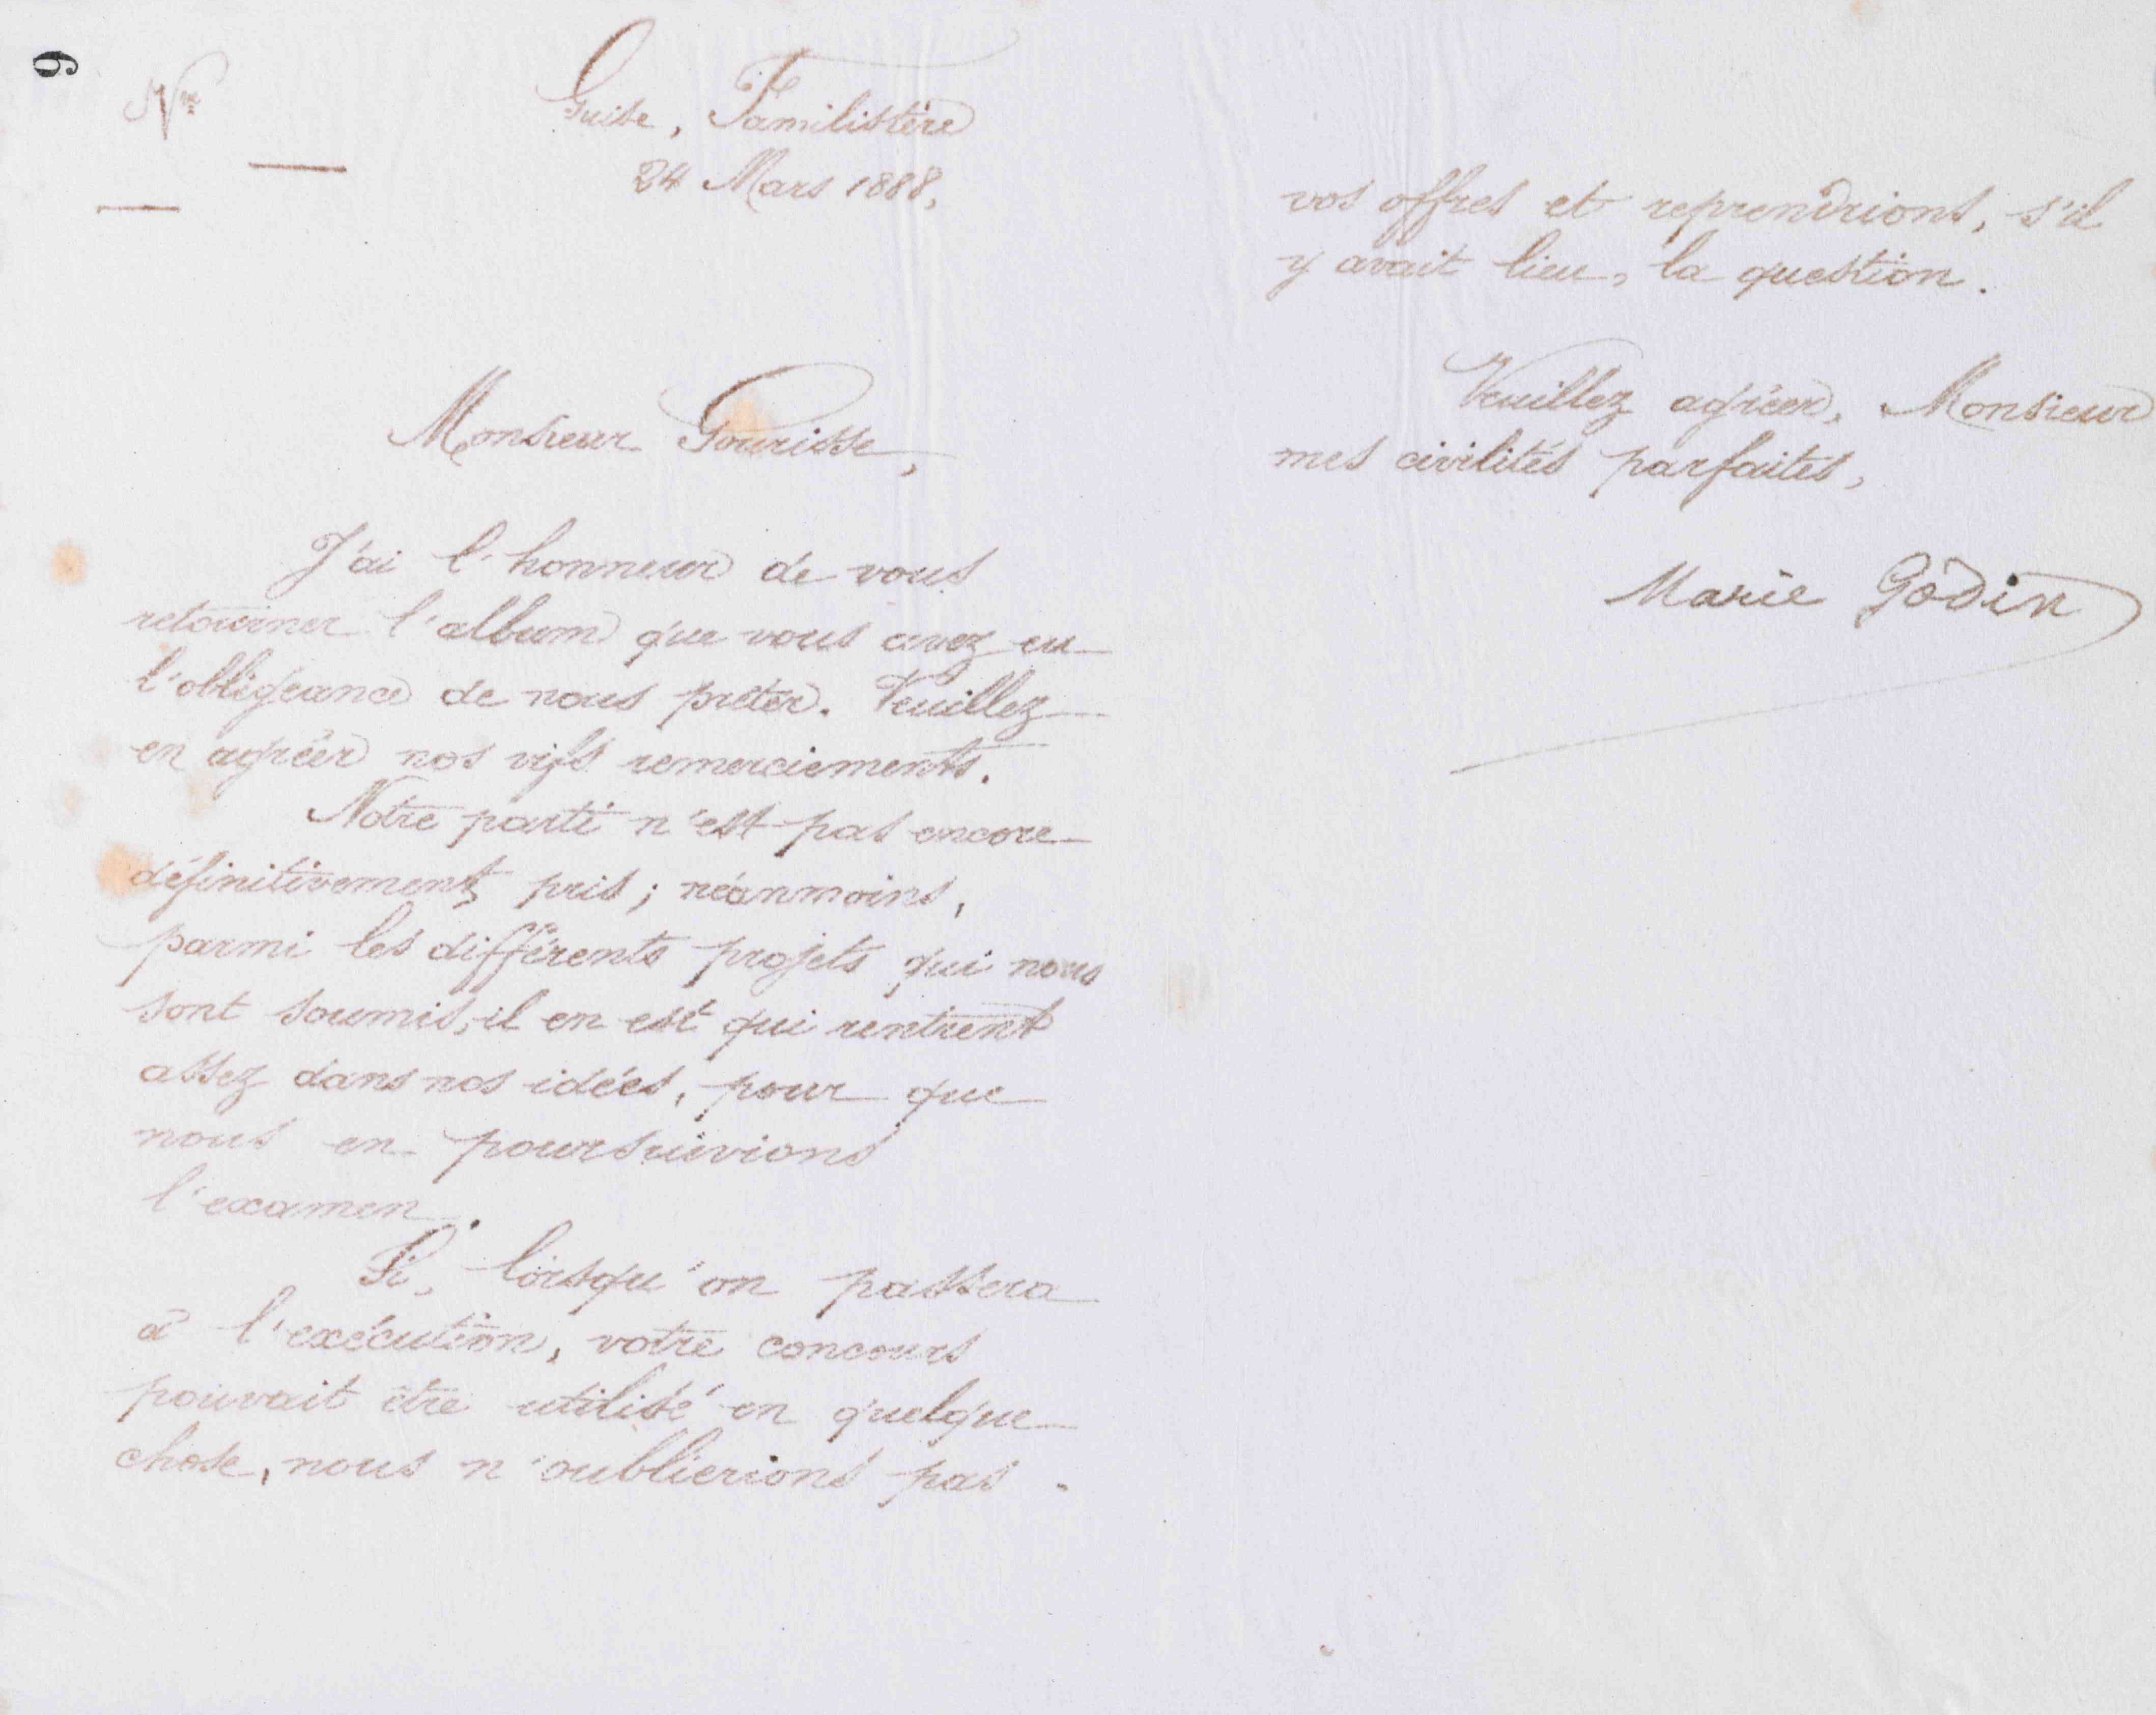 9
Nos
Guise, Familistère
24 Mars 1888.
Monsieur Gourisse,
J'ai l'honneur de vous
retourner l'album que vous avez eu
l'obligeance de nous prêter. Veuillez
en agréer nos vifs remerciements.
Notre parti n'est pas encore
définitivement pris ; néanmoins,
parmi les différents projets qui nous
sont soumis, il en est qui rentrent
assez dans nos idées, pour que
nous en poursuivions
l'examen.
Si, lorsqu'on passera
à l'exécution, votre concours
pouvait être utilisé en quelque
chose, nous n'oublierions pas
vos offres et reprendrions, s'il
y avait lieu, la question.
Veuillez agréer, Monsieur
mes civilités parfaites,
Marie Godin